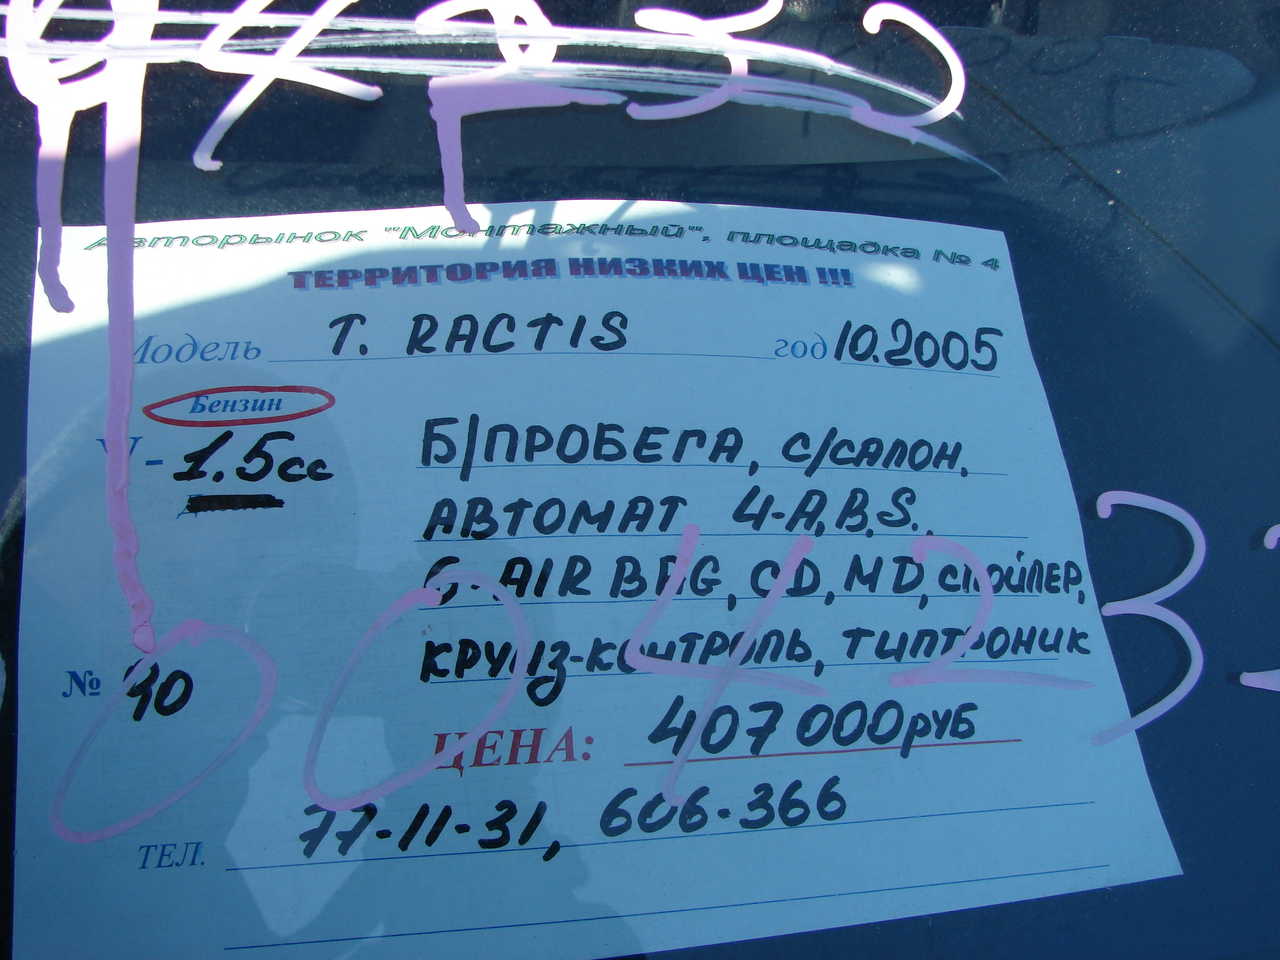 Авторынок "Монтажный", площадка № 4
ТЕРРИТОРИЯ НИЗКИХ ЦЕН !!!
Модель T. RACTIS год 10.2005
Бензин
V - 1.5cc
Б/ПРОБЕГА, С/САЛОН,
АВТОМАТ 4-A.B.S.,
6-AIR BAG, CD, MD, СПОЙЛЕР,
КРУИЗ-КОНТРОЛЬ, ТИПТРОНИК
№ 90
ЦЕНА: 407 000 РУБ
ТЕЛ. 77-11-31, 606-366